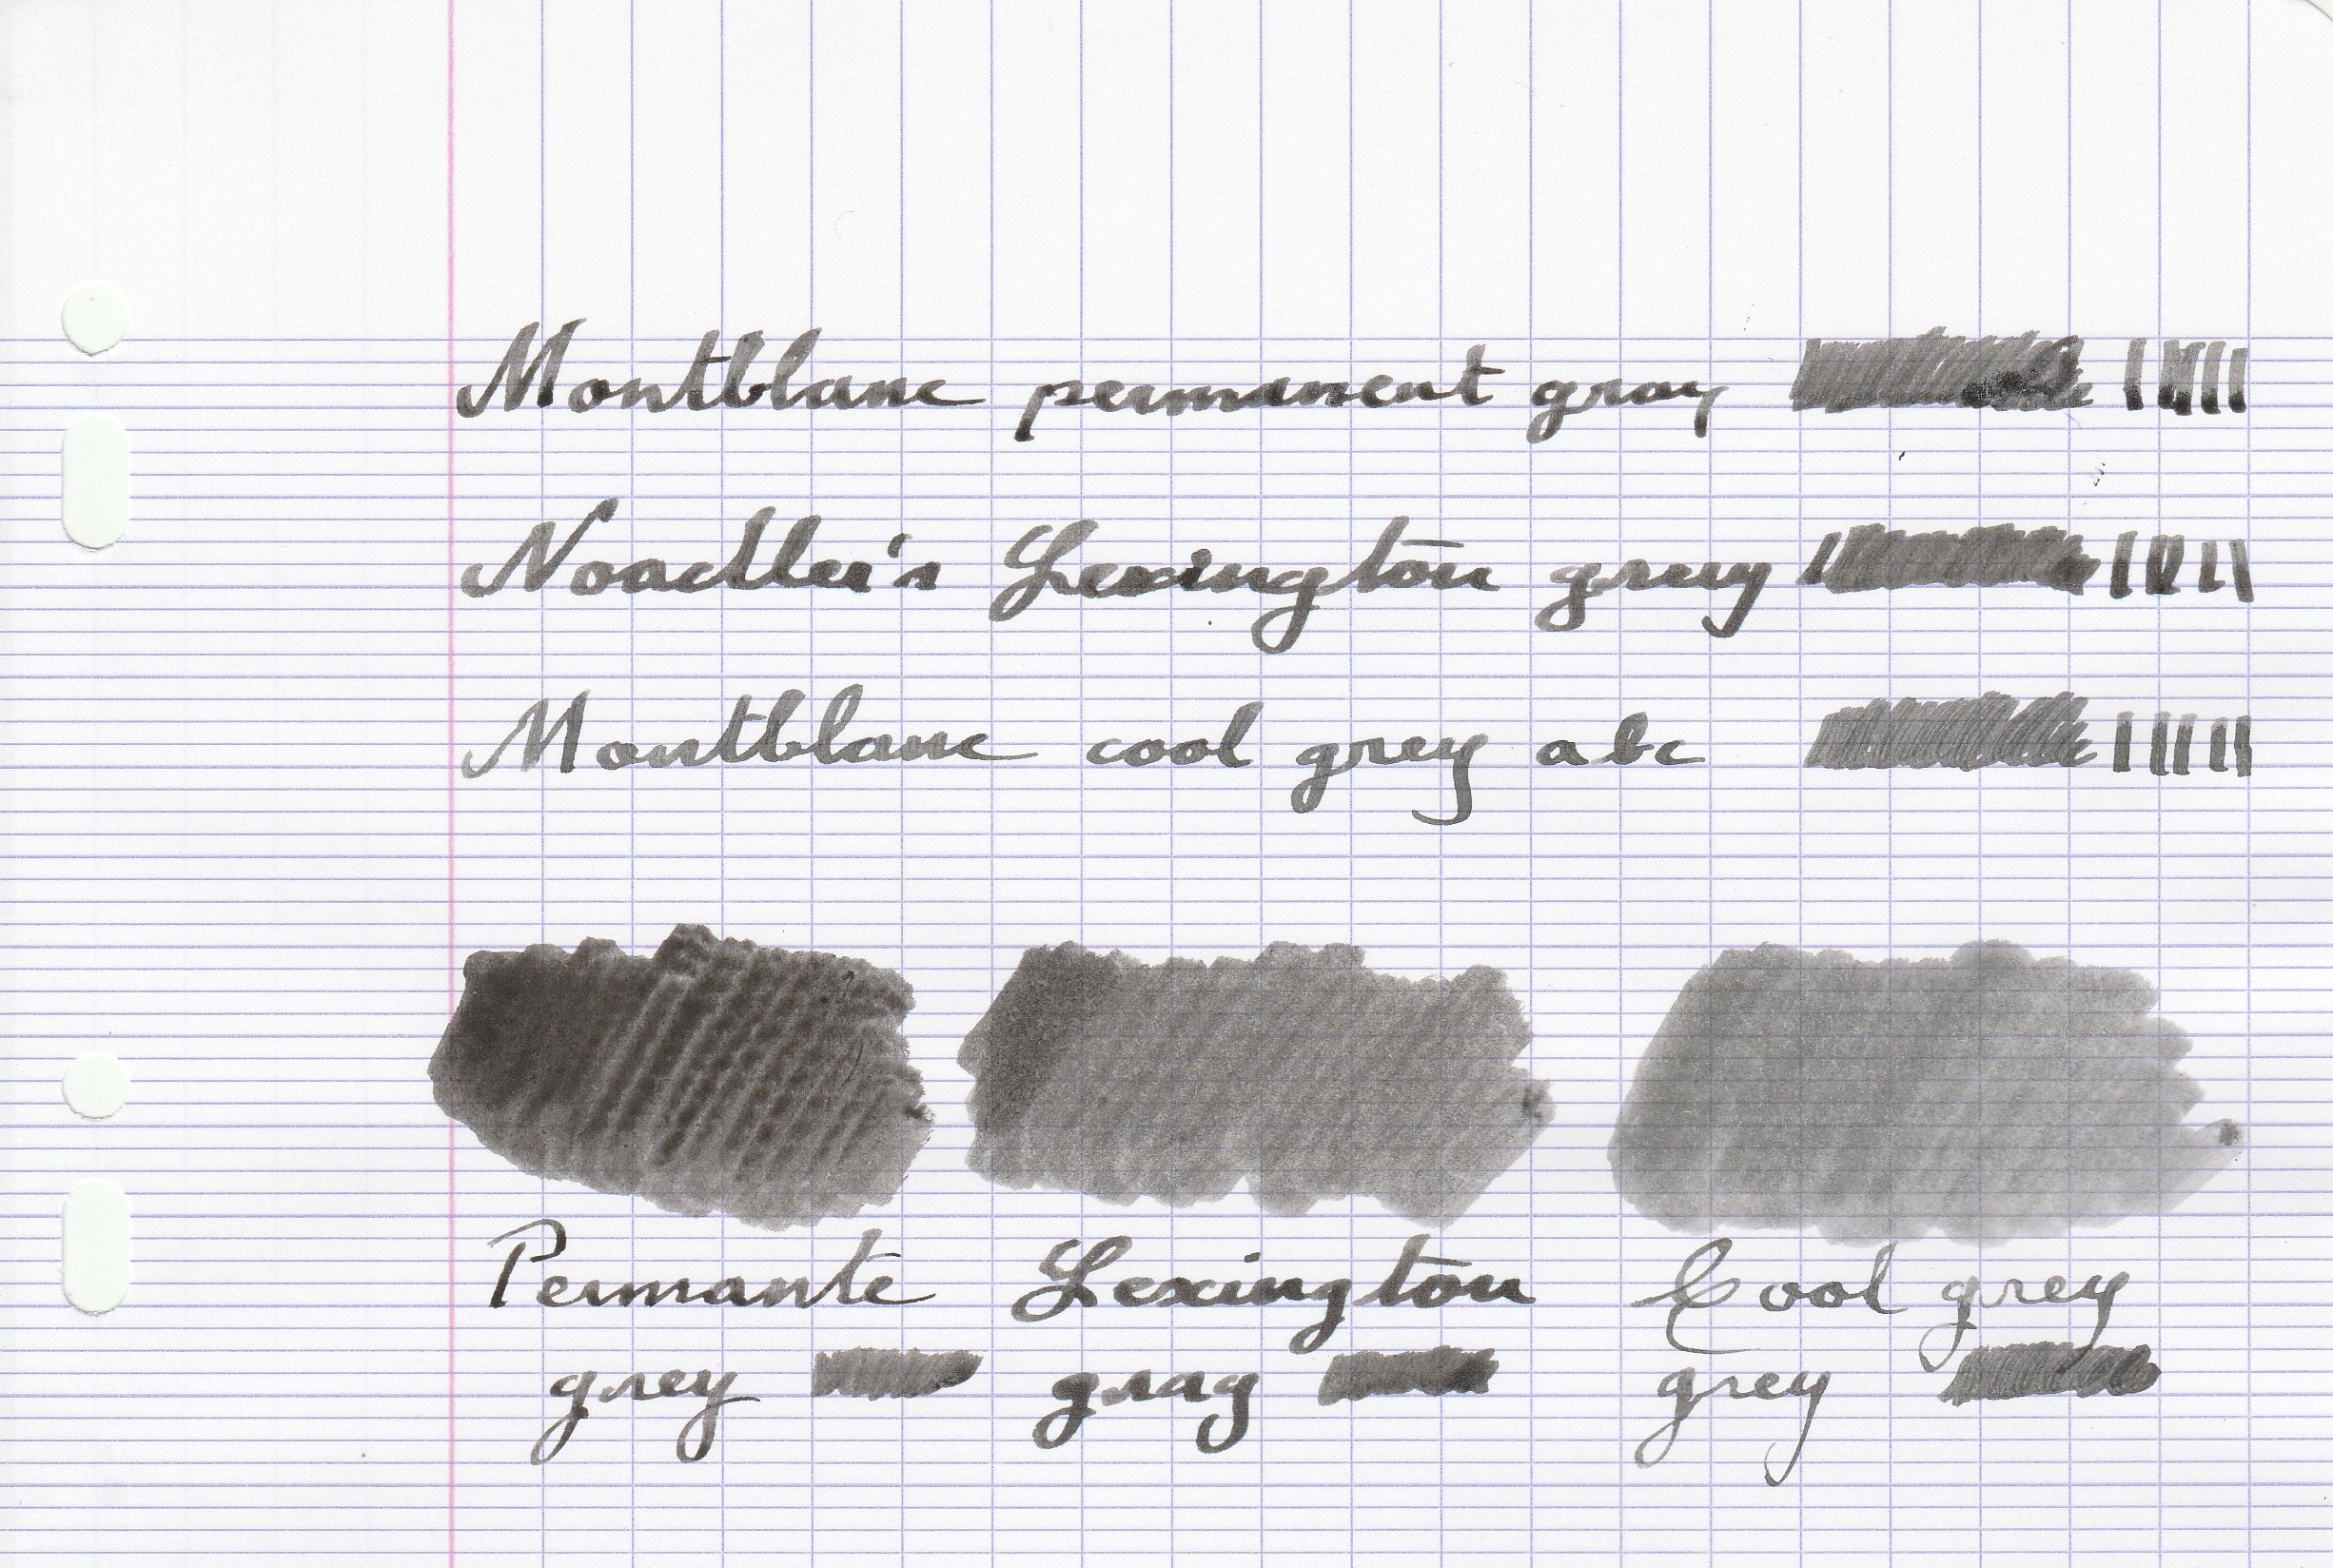 Montblanc permanent gray
Noodler's Lexington grey
Montblanc cool grey abc
Permante Lexington Cool grey
grey gray grey